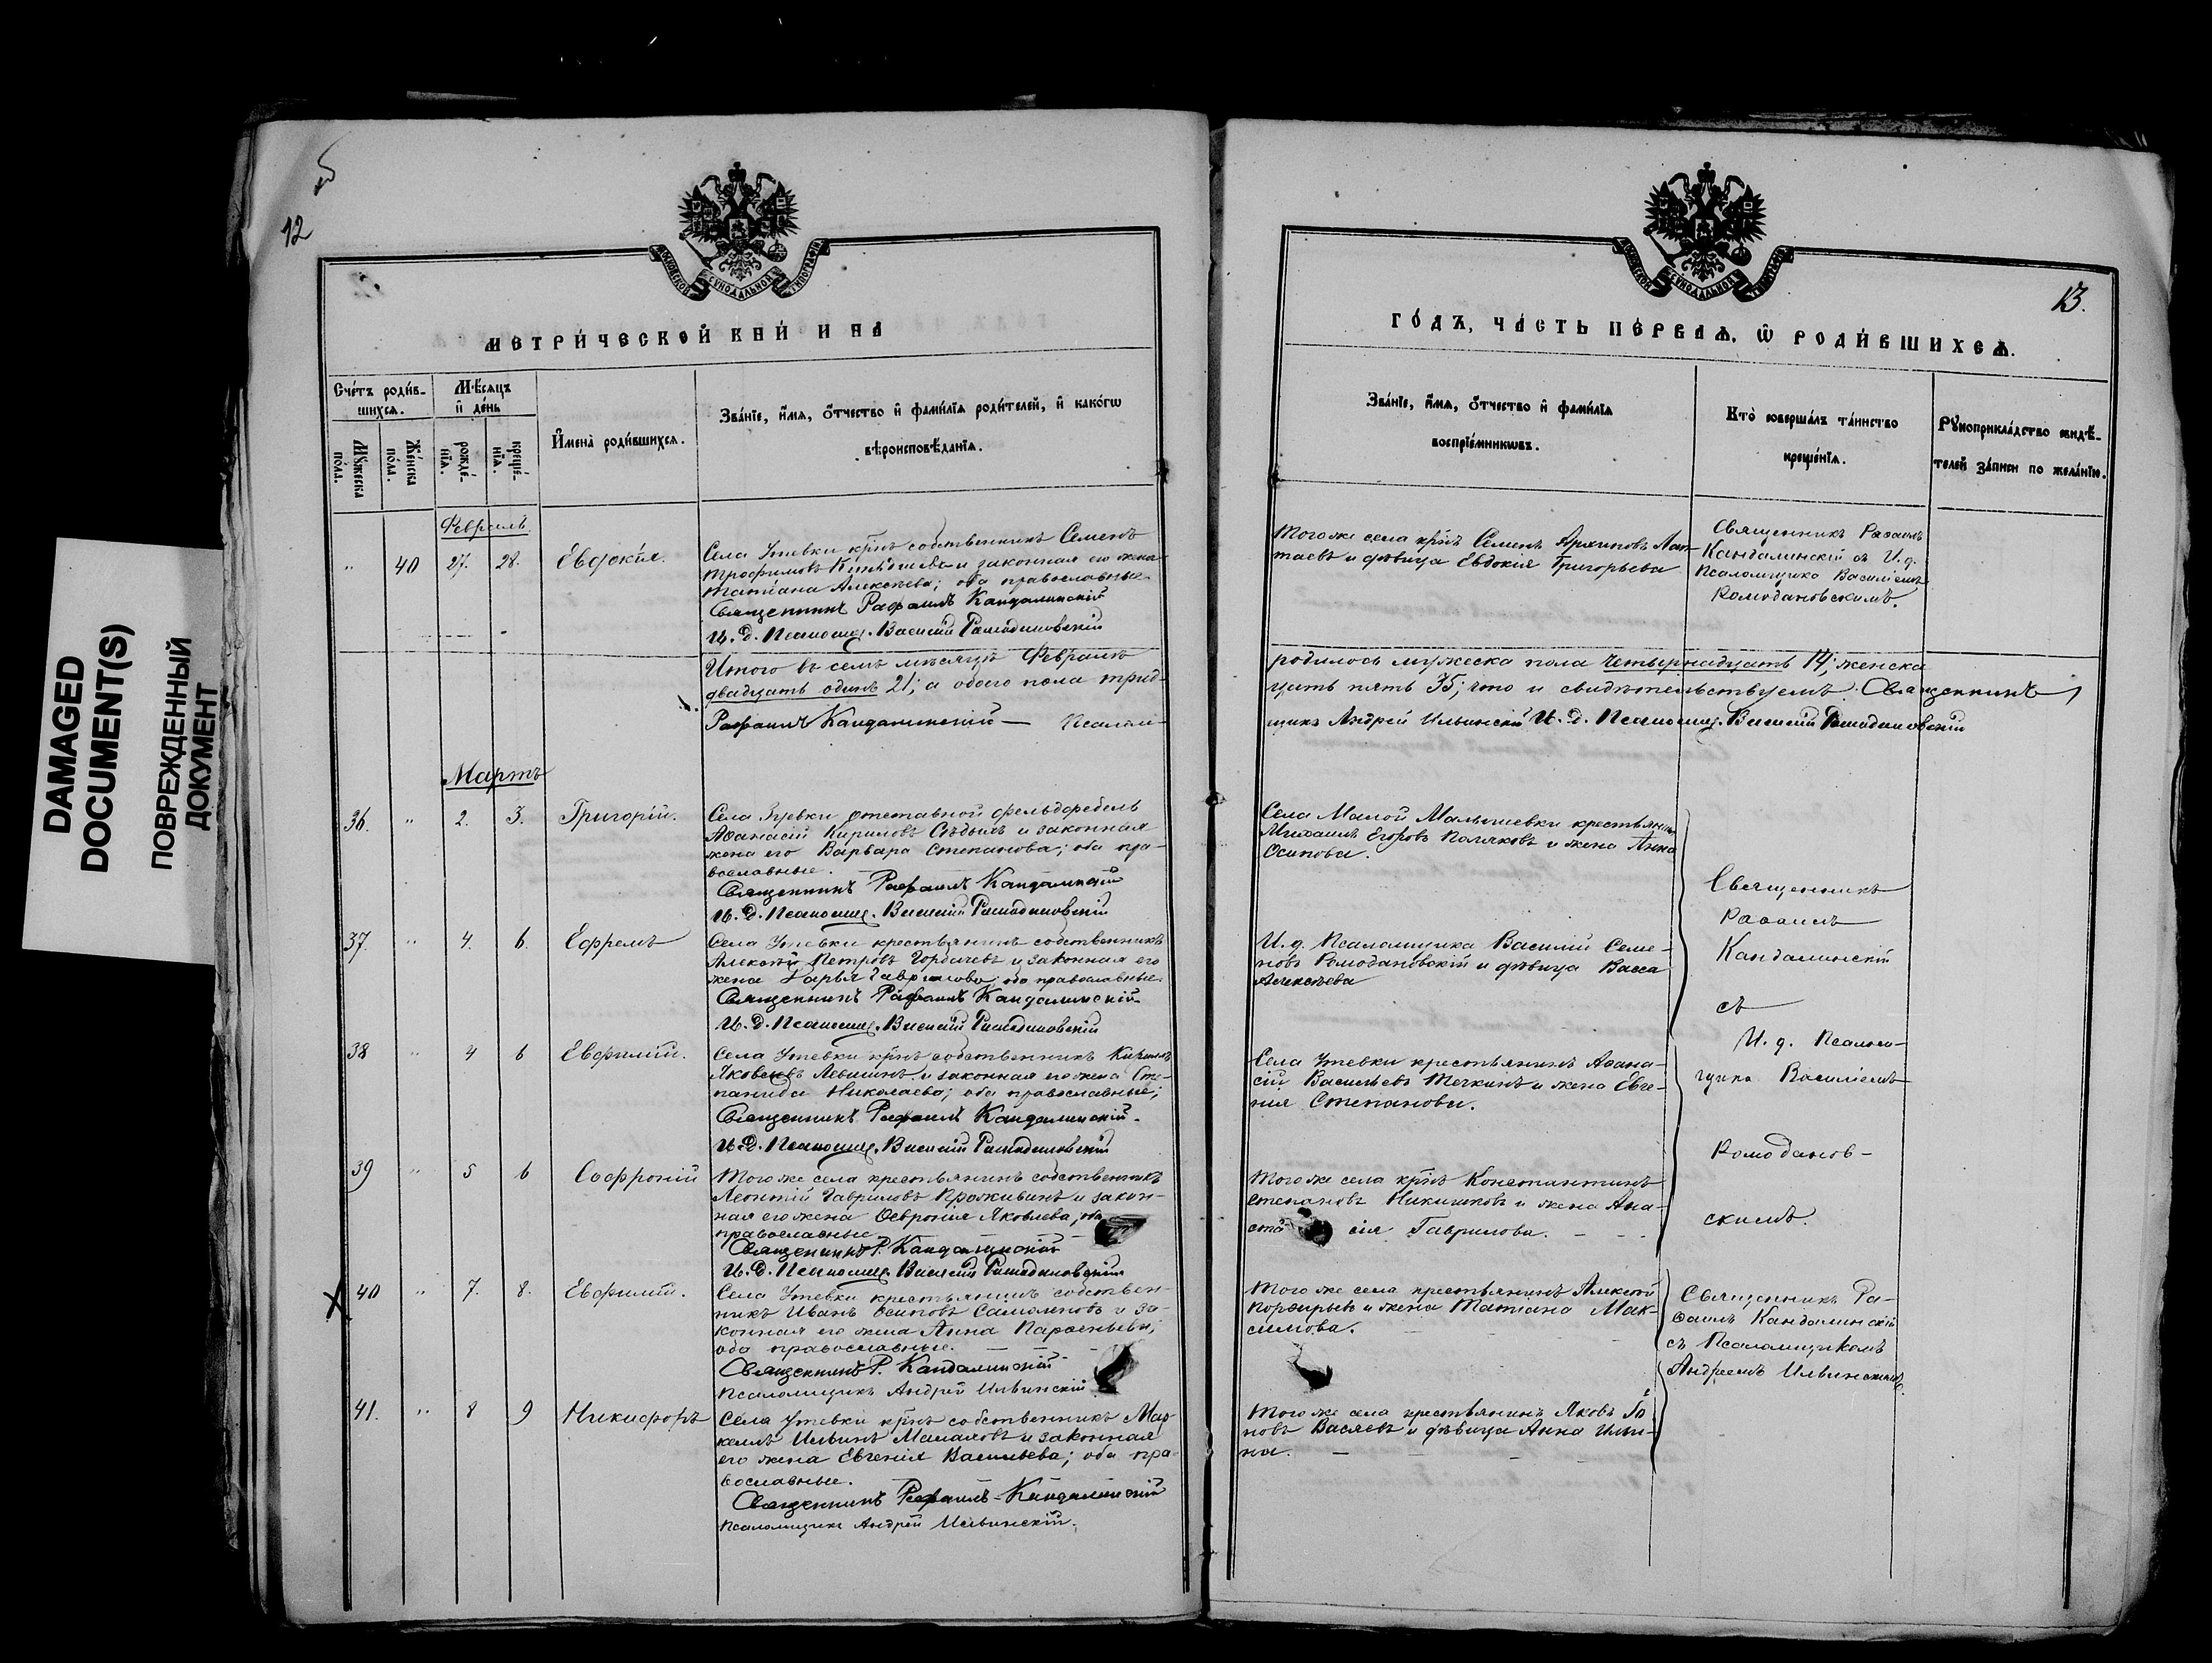 DAMAGED
DOCUMENT(S)
ПОВРЕЖДЕННЫЙ
ДОКУМЕНТ
12
МОСКОВСКОЙ СѴНОДАЛЬНОЙ ТИПОГРАФІИ
МЕТРИ́ЧЕСКОЙ КНИ́ И НА
Сче́тъ роди́в-
шихся.
Мѣ́сяцъ
и де́нь
Му́жеска по́ла.
Же́нска по́ла.
рожде́-
нїя.
креще́-
нїя.
И҆мена̀ роди́вшихся.
Зва́нїе, и҆́мя, ѻ҆́тчество и҆ фами́лїя роди́телей, и҆ како́гѡ
вѣроисповѣ́данїя.
Февраль.
" 40 27. 28. Евдокія.
Села Утевки крнъ собственникъ Семенъ
Трофимовъ и законная его жена
Татіана Алексѣева; оба православные
Священникъ Рафаилъ Кандалинскій
И. д. Псаломщ. Василій Ромодановскій
Итого въ семъ мѣсяцѣ Февралѣ
двадцать одинъ 21; а обоего пола трид-
Рафаилъ Кандалинскій — Псалом-
Мартъ
36. " 2. 3. Григорій.
Села Утевки отставной фельдфебель
Аѳанасій Кириловъ Сѣдыхъ и законная
жена его Варвара Степанова; оба пра-
вославные.
Священникъ Рафаилъ Кандалинскій
И. д. Псаломщ. Василій Ромодановскій
37. " 4. 6. Ефремъ
Села Утевки крестьянинъ собственникъ
Алексѣй Петровъ Горбачевъ и законная его
жена Дарья Гаврилова, оба православные.
Священникъ Рафаилъ Кандалинскій
И. д. Псаломщ. Василій Ромодановскій
38 " 4 6 Евфимій.
Села Утевки крнъ собственникъ Кирилъ
Яковлевъ Левшинъ и законная его жена Сте-
панида Николаева; оба православные;
Священникъ Рафаилъ Кандалинскій.
И. д. Псаломщ. Василій Ромодановскій
39 " 5 6 Софроній
Того же села крестьянинъ собственникъ
Леонтій Гавриловъ Проживинъ и закон-
ная его жена Ѳевронія Яковлева, оба
православные.
Священникъ Р. Кандалинскій
И. д. Псаломщ. Василій Ромодановскій
40 " 7. 8. Евфимій.
Села Утевки крестьянинъ собствен-
никъ Иванъ Осиповъ Самойловъ и за-
конная его жена Анна Парѳеньева;
оба православные.
Священникъ Р. Кандалинскій
Псаломщикъ Андрей Ильинскій
41. " 8 9 Никифоръ
Села Утевки крнъ собственникъ Мар-
келъ Ильинъ Малаховъ и законная
его жена Евгенія Васильева; оба пра-
вославные.
Священникъ Рафаилъ Кандалинскій
Псаломщикъ Андрей Ильинскій.
МОСКОВСКОЙ СѴНОДАЛЬНОЙ ТИПОГРАФІИ
13.
ГО́ДЪ, ЧА́СТЬ ПЕ́РВАЯ, Ѡ҆ РОДИ́ВШИХСЯ.
Зва́нїе, и҆́мя, ѻ҆́тчество и҆ фами́лїя
воспрїе́мникѡвъ.
Кто̀ соверша́лъ та́инство
креще́нїя.
Рꙋкоприкла́дство свидѣ́-
телей за́писи по жела́нїю.
Того же села крнъ Семенъ Архиповъ Лап-
таевъ и дѣвица Евдокія Григорьева
Священникъ Рафаилъ
Кандалинскій съ И. д.
Псаломщика Василіемъ
Ромодановскимъ.
родилось мужеска пола четырнадцать 14; женска
цать пять 35; что и свидѣтельствуемъ. Священникъ
щикъ Андрей Ильинскій И. д. Псаломщ. Василій Ромодановскій
Села Малой Малышевки крестьянинъ
Михаилъ Егоровъ Поляковъ и жена Анна
Осипова.
И. д. Псаломщика Василій Семе-
новъ Ромодановскій и дѣвица Васса
Алексѣева
Села Утевки крестьянинъ Аѳана-
сій Васильевъ Течкинъ и жена Евге-
нія Степанова.
Того же села крнъ Константинъ
Степановъ Никишковъ и жена Ана-
ста сія Гаврилова.
Священникъ
Рафаилъ
Кандалинскій
съ
И. д. Псалом-
щика Василіемъ
Ромоданов-
скимъ.
Того же села крестьянинъ Алексѣй
Порфирьевъ и жена Татіана Мак-
симова.
Священникъ Ра-
фаилъ Кандалинскій
съ Псаломщикомъ
Андреемъ Ильинскимъ.
Того же села крестьянинъ Яковъ
новъ Васяевъ и дѣвица Анна Ильи-
на.